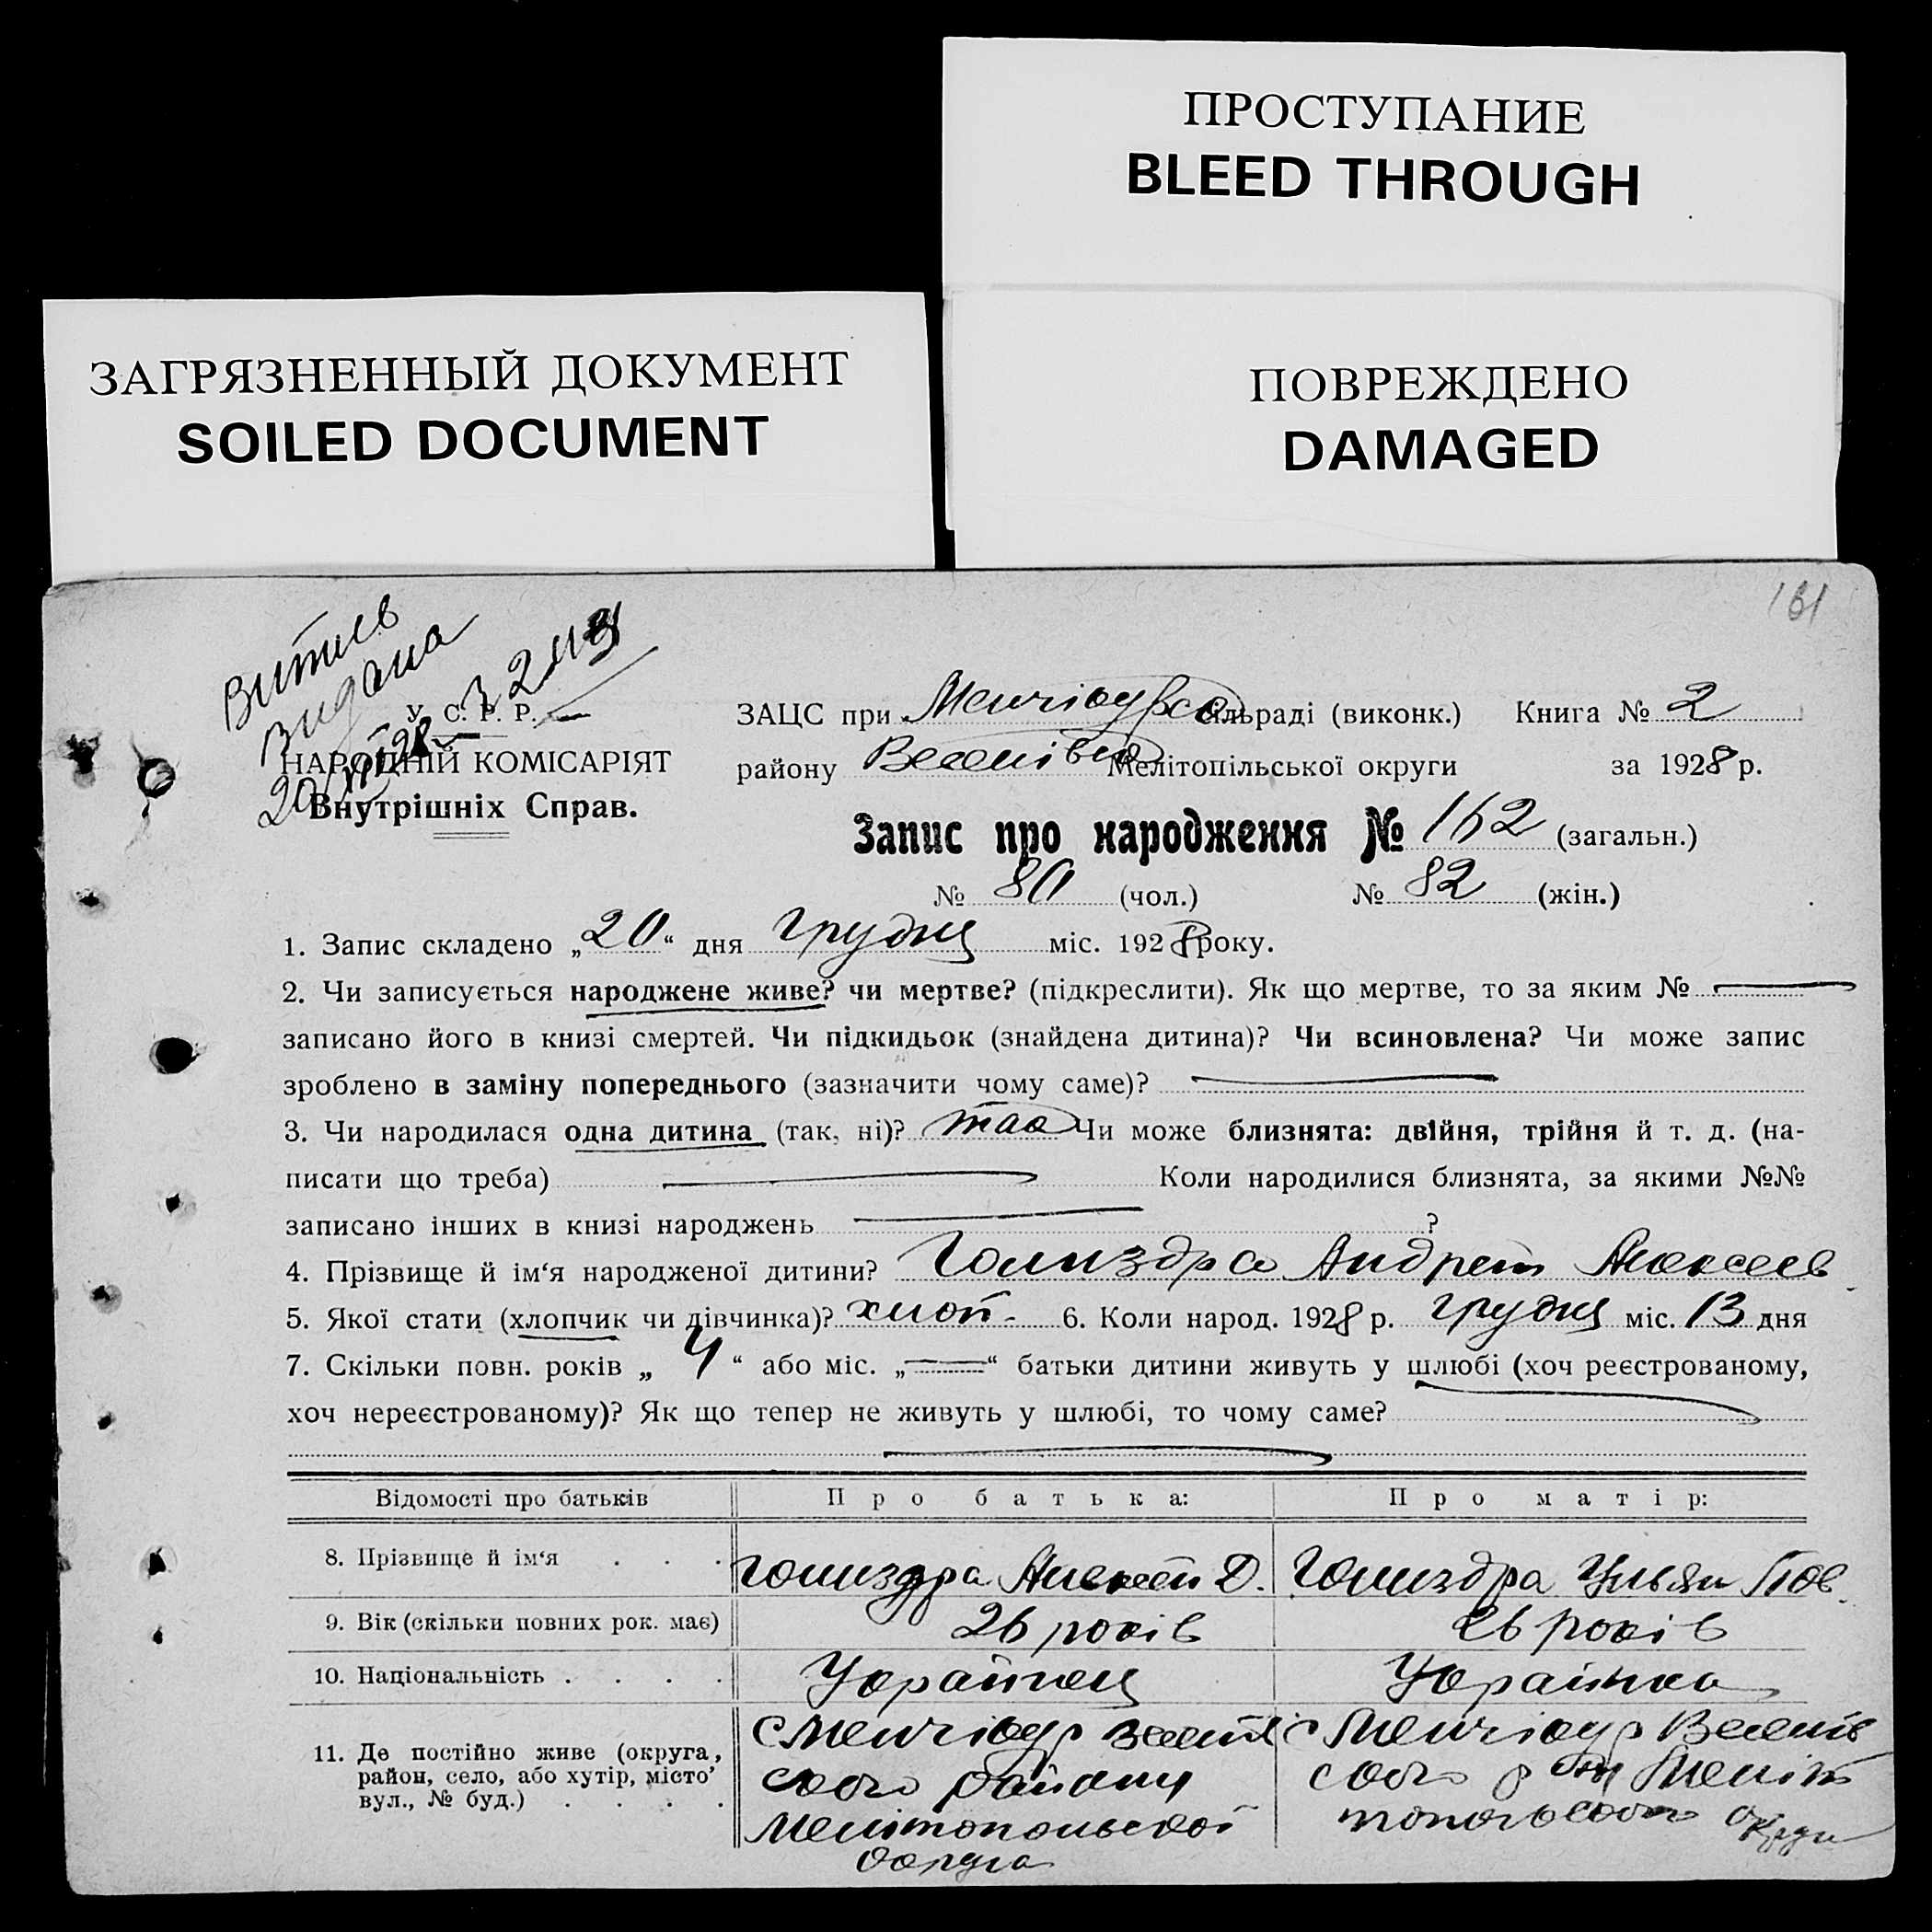 ПРОСТУПАНИЕ
BLEED THROUGH
ЗАГРЯЗНЕННЫЙ ДОКУМЕНТ
SOILED DOCUMENT
ПОВРЕЖДЕНО
DAMAGED
161
Витяг
видана
У. С. Р. Р.
НАРОДНІЙ КОМІСАРІЯТ
Внутрішніх Справ.
ЗАЦС при Менчікурск сільраді (виконк.) Книга № 2
району Веселівск Мелітопільської округи за 1928 р.
Запис про народження № 162 (загальн.)
№ 80 (чол.) № 82 (жін.)
1. Запис складено „20“ дня грудня міс. 1928 року.
2. Чи записується народжене живе? чи мертве? (підкреслити). Як що мертве, то за яким №
записано його в книзі смертей. Чи підкидьок (знайдена дитина)? Чи всиновлена? Чи може запис
зроблено в заміну попереднього (зазначити чому саме)?
3. Чи народилася одна дитина (так, ні)? так Чи може близнята: двійня, трійня й т. д. (на-
писати що треба) Коли народилися близнята, за якими №№
записано інших в книзі народжень ?
4. Прізвище й ім‘я народженої дитини? Голиздра Андрей Алексеев
5. Якої стати (хлопчик чи дівчинка)? хлоп. 6. Коли народ. 1928 р. грудня міс. 13 дня
7. Скільки повн. років „ 4 “ або міс. „ “ батьки дитини живуть у шлюбі (хоч реєстрованому,
хоч нереєстрованому)? Як що тепер не живуть у шлюбі, то чому саме?
Відомості про батьків Про батька: Про матір:
8. Прізвище й ім‘я . . . Голиздра Алексей Д. Голиздра Ульян Пав.
9. Вік (скільки повних рок. має) 26 років 26 років
10. Національність . . . . Українец Українка
11. Де постійно живе (округа, район, село, або хутір, місто’ вул., № буд.) . . . .
с Менчікур Веселів
ского району
Мелітопольської
округа
с Менчікур Веселів
ского р-ну Меліт
опольского округи